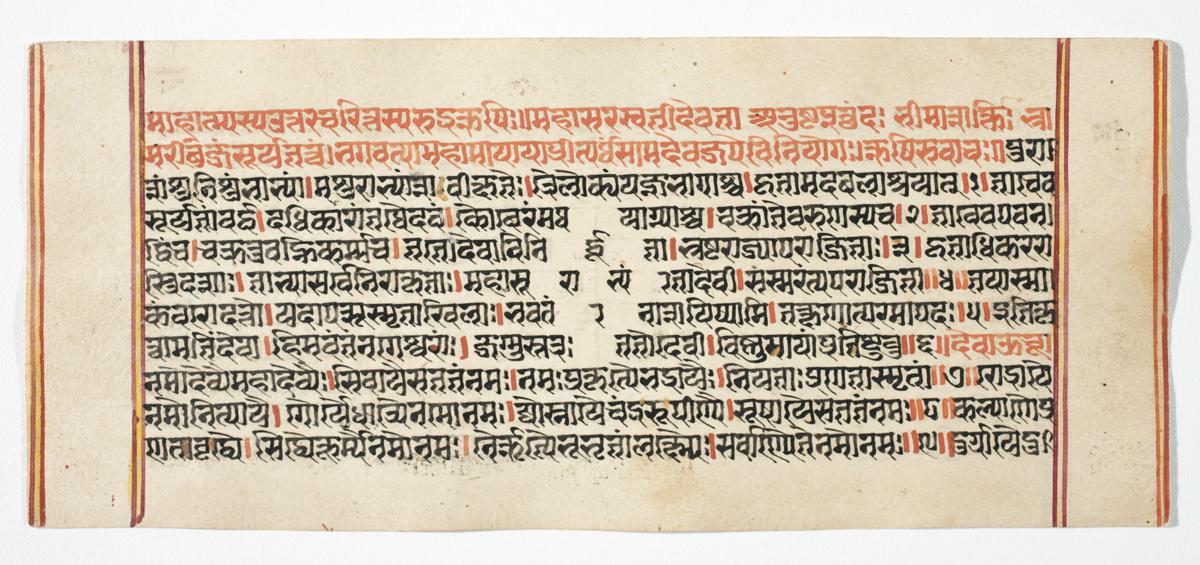 माहात्म्यस्यउत्तरचरित्रस्यरुद्रऋषिः॥महासरस्वतीदेवता अनुष्टुप्छंदः भीमाशक्तिः भ्रा
मरीबीजंसूर्यतत्वं।भगवत्यामहामायायाप्रीत्यर्थंसामवेदजपेविनियोगः॥ऋषिरुवाच॥पुरा
शुंभनिशुंभाभ्यां।मसुराभ्यांशचीपतेः।त्रैलोक्यंयज्ञभागाश्च।हृतामदबलाश्रयात।१।तावेव
सूर्यतांतद्वद।दधिकारंतथैंदवं।कौबेरंमथ याम्याश्च।चक्रांतेवरुणस्यच।२।तावेवपवन
र्द्धिंच।चक्रतुर्वह्निकर्मच।ततोदेवाविनि र्द्धू ता।भ्रष्टराज्यापराजिताः।३।हृताधिकारा
स्त्रिदशाः।ताभ्यांसर्वेनिराकृताः।महासु रा भ्यं तांदेवीं।संस्मरंत्यपराजितां॥४॥तयास्मा
कंवरोदत्तो।यथापत्सुस्मृताखिलाः।भवतं ा नाशयिष्यामि।तत्क्षणात्परमापदः।५।इतिकृ
त्वामतिंदेवा।हिमवंतंनगेश्वरं।जग्मुस्तत्र ततोदेवीं।विष्णुमायांप्रतुष्टुवु॥६॥देवाऊचुः
नमोदेव्यैमहादेव्यै।सिवायैसततंनमः।नमःप्रकृत्यैभद्रायै।नियताःप्रणतास्मृतां॥७॥रौद्रायै
नमोनित्यायै।गौर्यैधात्र्यैनमोनमः।ज्योत्स्नायैचेंद्ररूपीण्यै।सूखायैसततंनमः॥८॥कल्याणैप्र
णतावृद्ध्यै।सिद्ध्यैकूर्म्यैनमोनमः।नैर्ऋत्यैभूभृतांलक्ष्म्यै।सर्वाण्यैतेनमोनमः॥९॥दुर्गायैदु